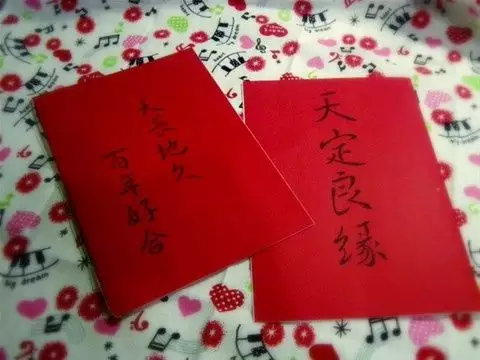 天長地久
百年好合
天定良緣
by dream